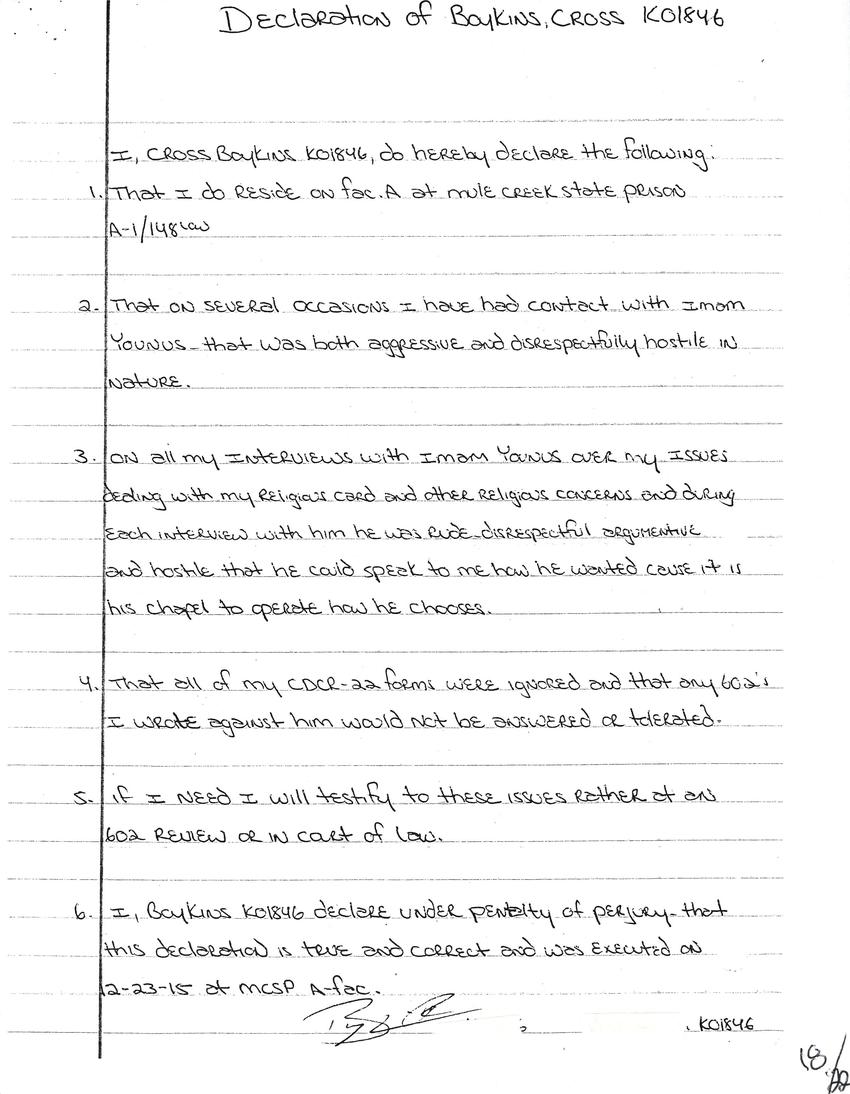 Declaration of Boykins, Cross K01846
I, Cross Boykins K01846, do hereby declare the following:
1. That I do reside on fac. A at mule creek state prison
A-1/148 low
2. That on several occasions I have had contact with Imam
Younus that was both aggressive and disrespectfully hostile in
nature.
3. On all my interviews with Imam Younus over my issues
dealing with my Religious card and other religious concerns and during
each interview with him he was rude disrespectful argumentive
and hostile that he could speak to me how he wanted cause it is
his chapel to operate how he chooses.
4. That all of my CDCR-22 forms were ignored and that any 602's
I wrote against him would not be answered or tolerated.
5. If I need I will testify to these issues rather at an
602 review or in cort of law.
6. I, Boykins K01846 declare under pentelty of perjury that
this declaration is true and correct and was executed on
2-23-15 at MCSP A-fac.
K01846
18/22